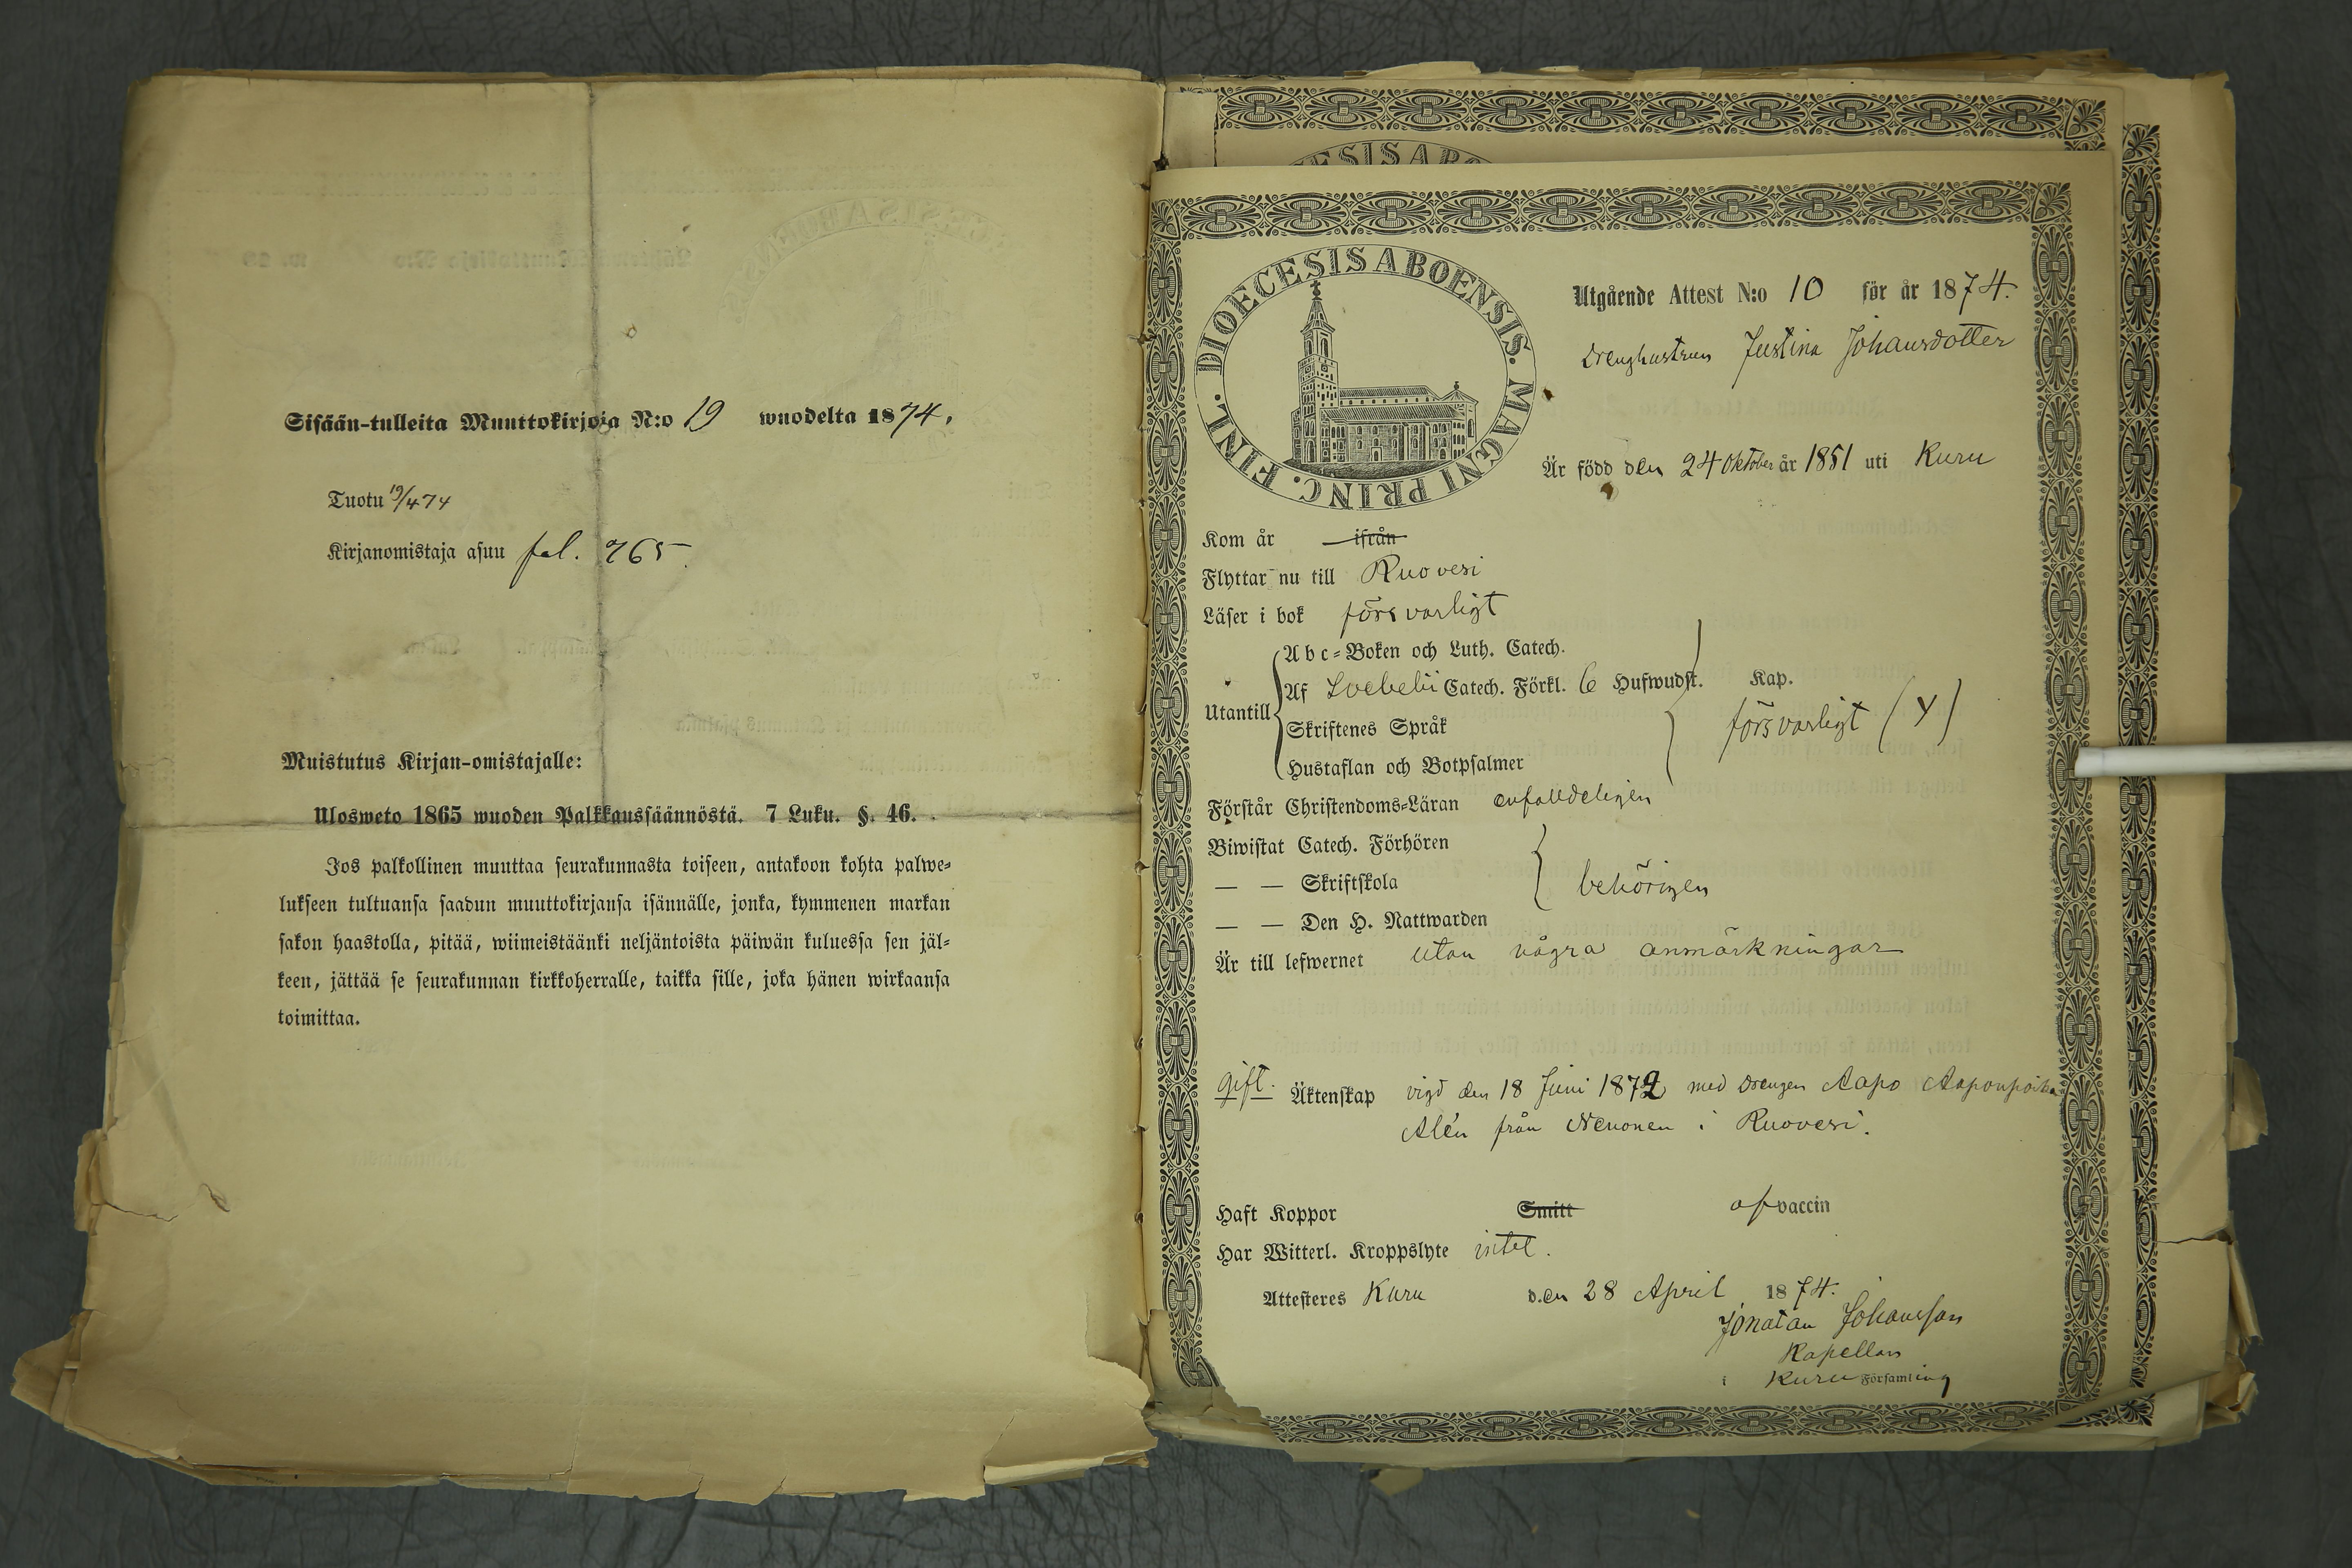 Sisään-tulleita Muuttokirjoja N:o 19 wuodelta 1874.
Tuotu 19/4 74
Kirjanomistaja asuu fol. 765.
Muistutus Kirjan-omistajalle:
Ulosweto 1865 wuoden Palkkaussäännöstä. 7 Luku. §. 46.
Jos palkollinen muuttaa seurakunnasta toiseen, antakoon kohta palwe-
lukseen tultuansa saadun muuttokirjansa isännälle, jonka, kymmenen markan
sakon haastolla, pitää, wiimeistäänki neljäntoista päiwän kuluessa sen jäl-
keen, jättää se seurakunnan kirkkoherralle, taikka sille, joka hänen wirkaansa
toimittaa.
DIOECESIS ABOENSIS. MAGNI PRINC. FINL.
Utgående Attest N:o 10 för år 1874.
Drenghustrun Justina Johansdotter
Är född den 24 Oktober år 1851 uti Kuru
Kom år ifrån
Flyttar nu till Ruovesi
Läser i bok försvarligt
Utantill
Abc-Boken och Luth. Catech.
Af Svebelii Catech. Förkl. 6 Hufwudst. Kap.
Skriftenes Språk
försvarligt (Y)
Hustaflan och Botpsalmer
Förstår Christendoms-Läran enfalldeligen
Biwistat Catech. Förhören
— — Skriftskola
behörigen
— — Den H. Nattwarden
Är till lefwernet utan några anmärkningar
gift. Äktenskap vigd den 18 Juni 1872 med Drengen Aapo Aaponpoika
Alén från Nenonen i Ruovesi.
Haft Koppor Smitt af vaccin
Har Witterl. Kroppslyte intet.
Attesteres Kuru den 28 April 1874.
Jonatan Johansson
Kapellan
i Kuru Församling